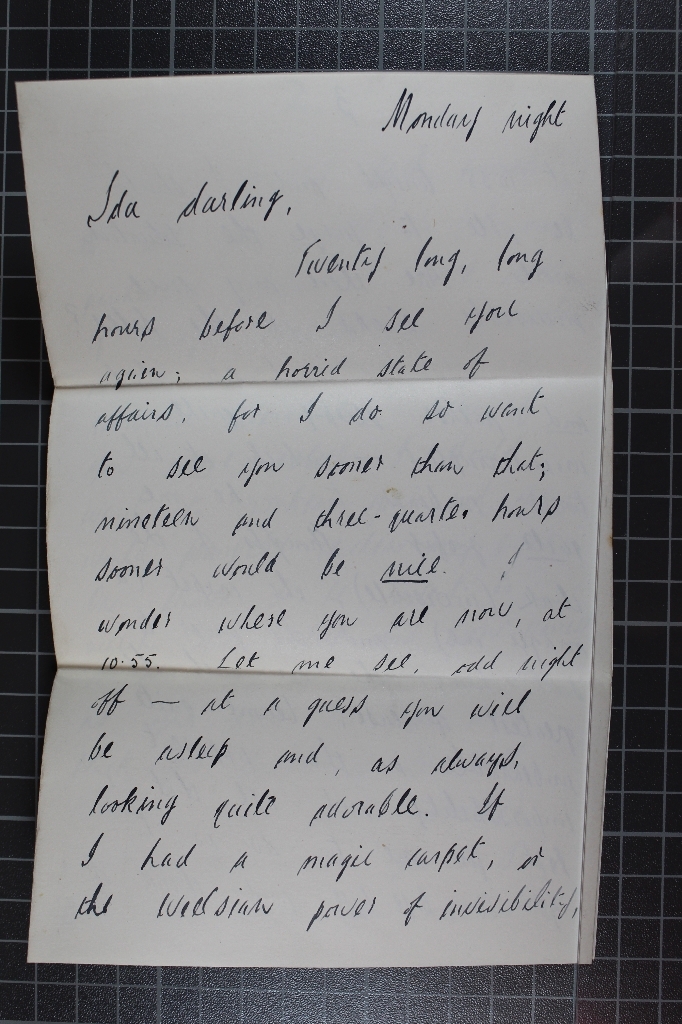 Monday night
Ida darling,
Twenty long, long
hours before I see you
again; a horrid state of
affairs, for I do so want
to see you sooner than that;
nineteen and three-quarter hours
sooner would be nice. I
wonder where you are now, at
10.55. Let me see, odd night
off — at a guess you will
be asleep and, as always,
looking quite adorable. If
I had a magic carpet, or
the Wellsian power of invisibility,